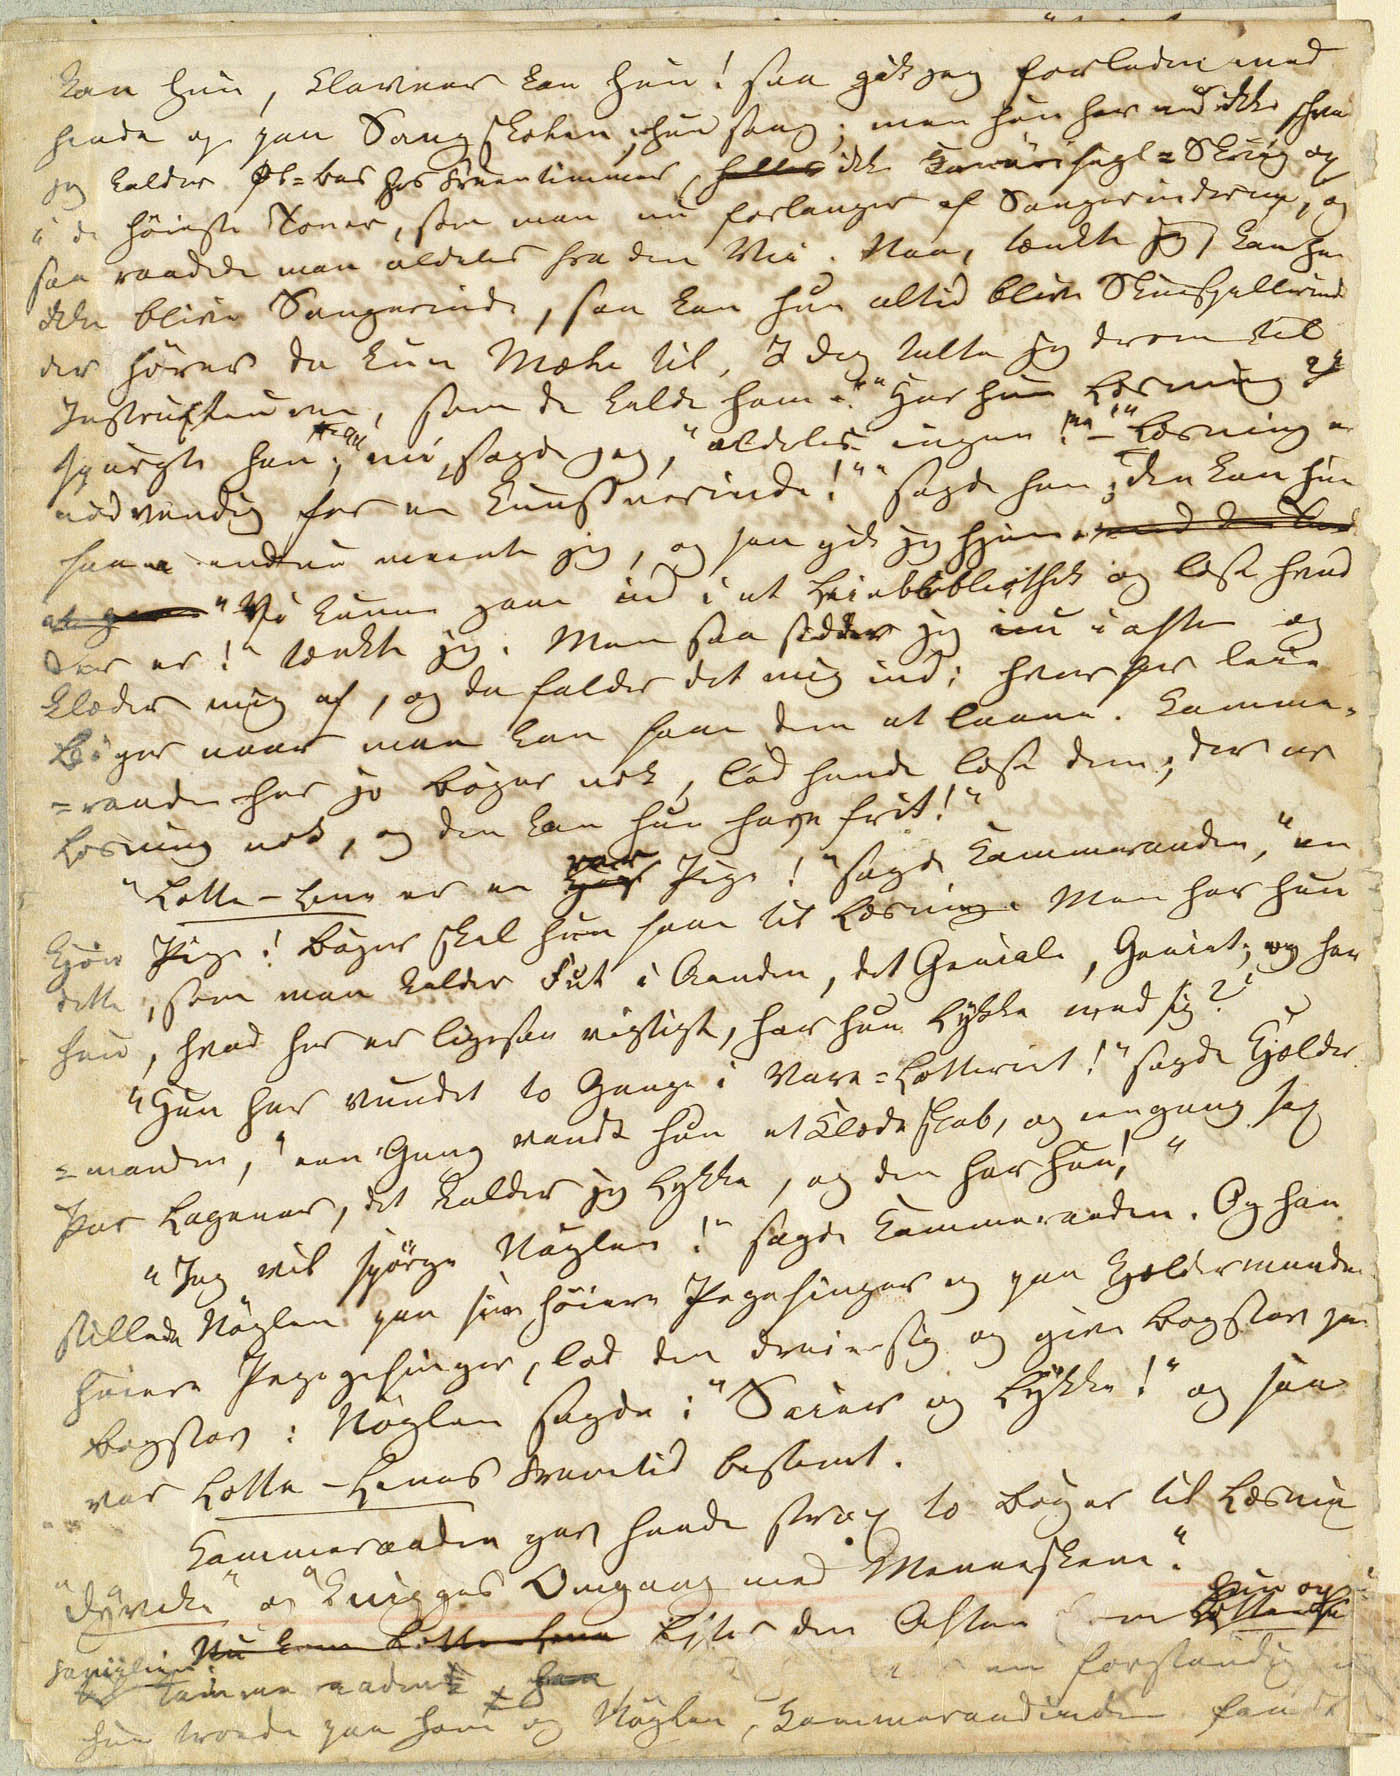 kan hun, Claveer kan hun! saa gik jeg forleden med
hende op paa Sangskolen, hun sang; men hun har ikke hvad
jeg kalder Øl-Bas hos Fruentimmer, heller ikke Kanarifugl-Skrig op
i de høieste Toner, som man nu forlanger af Sangerinderne, og
saa raadede man aldeles fra den Vei. Naa, tænkte jeg, kan hun
ikke blive Sangerinde, saa kan hun altid blive Skuespillerinde
der hører da kun Mæle til. I Dag talte jeg derom til
Instructeuren, som de kalde ham." "Har hun Læsning?"
spurgte han, "nei, sagde jeg, "aldeles ingen!" – "Læsning er
nødvendig for en Kunstnerinde!" sagde han; den kan hun
faae endnu meente jeg, og saa gik jeg hjem.
"Vi kunne gaae ind i et Leiebibliothek og læse hvad
der er!" tænkte jeg. Men saa sidder jeg nu i aften og
klæder mig af, og da falder det mig ind: hvorfor leie
Bøger naar man kan faae dem at laane. Kamme-
-raaden har jo Bøger nok, lad hende læse dem; der er
Læsning nok, og den kan hun have frit!"
"Lotte-Lene er en rar Pige!" sagde Kammeraaden, "en
kjøn Pige! Bøger skal hun faae til Læsning. Men har hun
dette, som man kalder Fut i Aanden, det Geniale, Geniet; og har
hun, hvad her er ligesaa vigtigt, har hun Lykke med sig?"
"Hun har vundet to Gange i Vare-Lotteriet!" sagde Kjælder
-manden, "een Gang vandt hun et Klædeskab, og engang sex
Par Lagener, det kalder jeg Lykke, og den har hun!"
"Jeg vil spørge Nøglen!" sagde Kammeraaden. Og han
stillede Nøglen paa sin høire Pegefinger og paa Kjældermandens
høire Pegefinger, lod den dreie sig og give Bogstav paa
Bogstav: Nøglen sagde: "Seier og Lykke!" og saa
var Lotte-Lenes Fremtid bestemt.
Kammeraaden gav hende strax to Bøger til Læsning
"Dyveke" og "Knigges Omgang med Mennesker".
Nu kom Lotte-Lene Efter den Aften
Kammeraaden en forstandig
hun troede paa ham og Nøglen, Kammeraadinden fandt